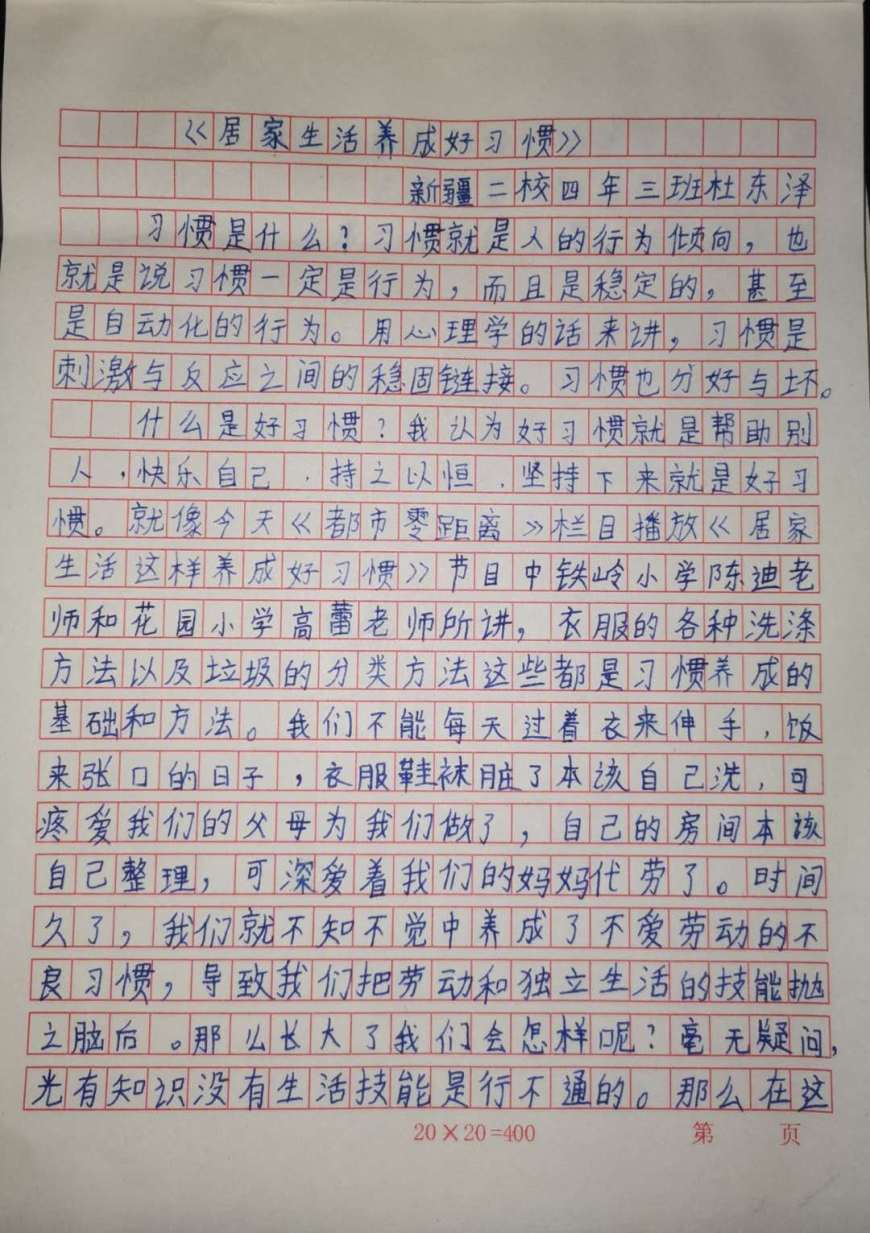 《居家生活养成好习惯》
新疆二校四年三班杜东泽
习惯是什么?习惯就是人的行为倾向,也
就是说习惯一定是行为,而且是稳定的,甚至
是自动化的行为。用心理学的话来讲,习惯是
刺激与反应之间的稳固链接。习惯也分好与坏。
什么是好习惯?我认为好习惯就是帮助别
人,快乐自己,持之以恒,坚持下来就是好习
惯。就像今天《都市零距离》栏目播放《居家
生活这样养成好习惯》节目中铁岭小学陈迪老
师和花园小学高蕾老师所讲,衣服的各种洗涤
方法以及垃圾的分类方法这些都是习惯养成的
基础和方法。我们不能每天过着衣来伸手,饭
来张口的日子,衣服鞋袜脏了本该自己洗,可
疼爱我们的父母为我们做了,自己的房间本该
自己整理,可深爱着我们的妈妈代劳了。时间
久了,我们就不知不觉中养成了不爱劳动的不
良习惯,导致我们把劳动和独立生活的技能抛
之脑后。那么长大了我们会怎样呢?毫无疑问,
光有知识没有生活技能是行不通的。那么在这
20×20=400 第 页